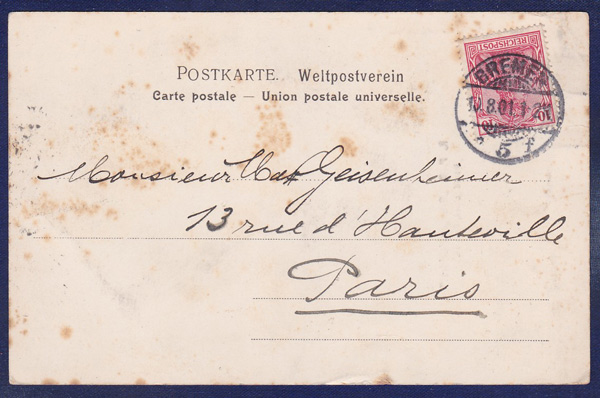 POSTKARTE. Weltpostverein
Carte postale — Union postale universelle.
REICHSPOST
10
BREMEN
8.01.1-2
5 f
Monsieur Max Geisenheimer
13 rue d'Hauteville
Paris